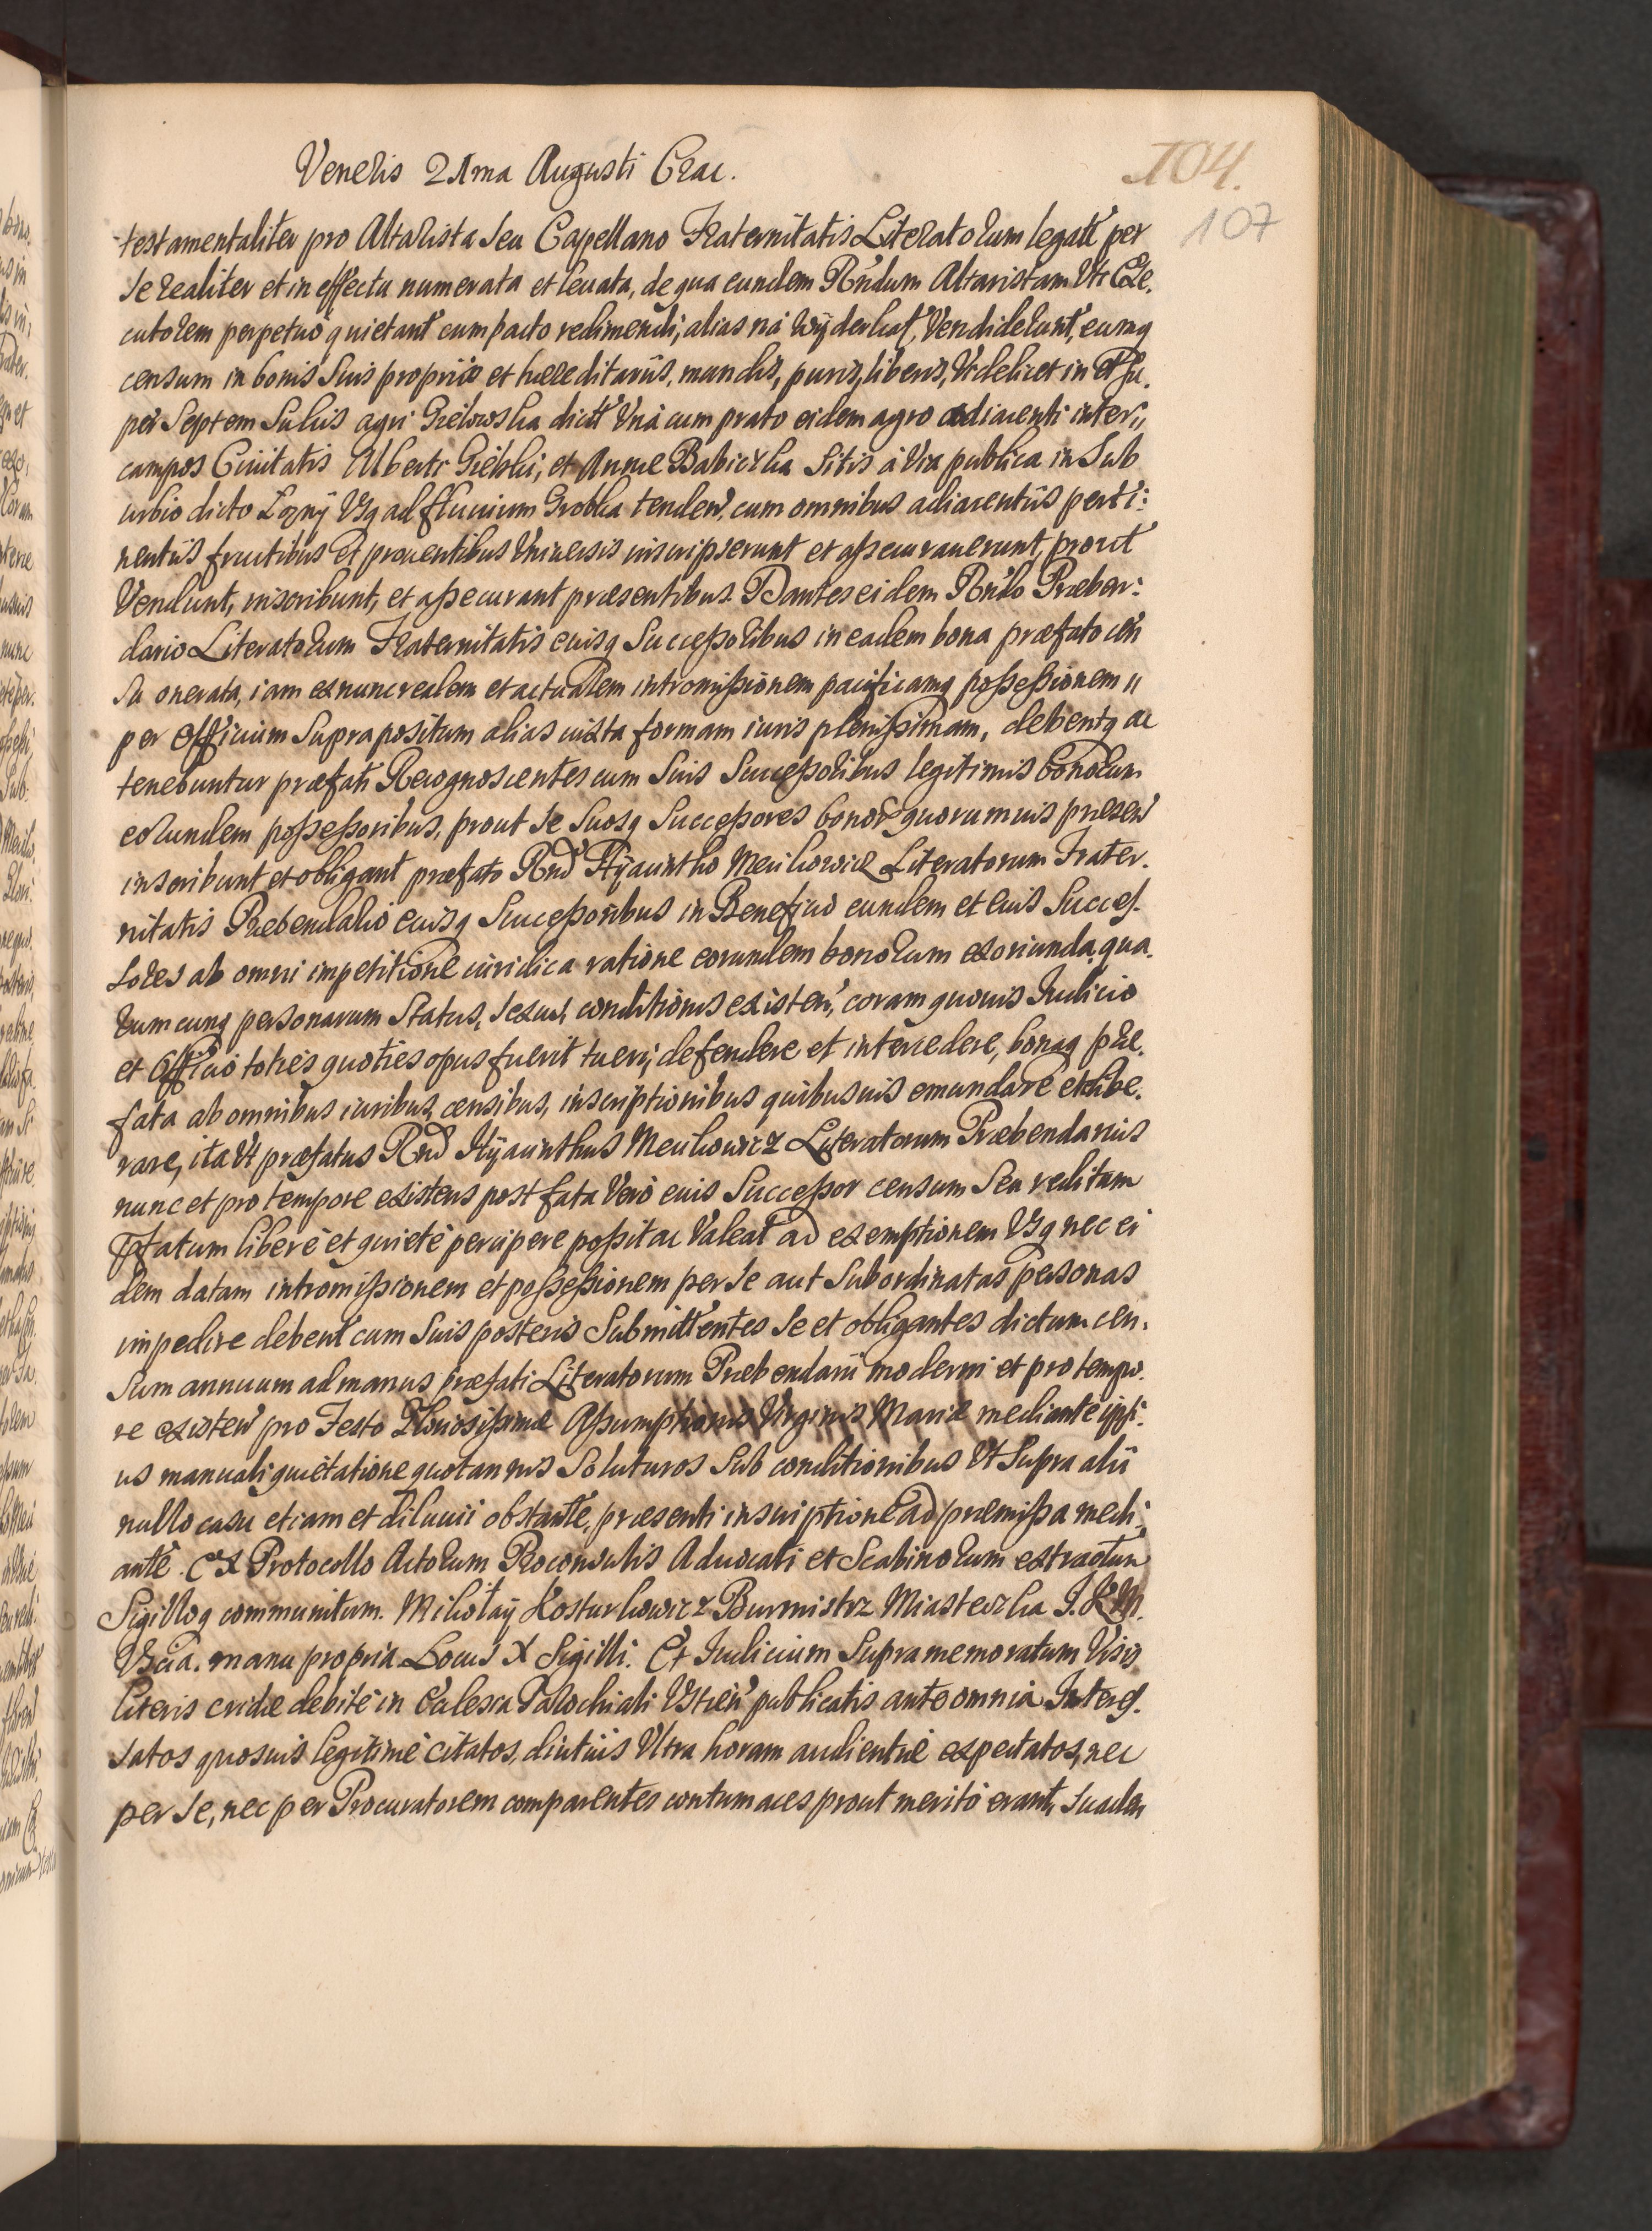 Veneris 21ma Augusti Crac.
104.
107
testamentaliter pro Altarista seu Capellano Fraternitatis Literatorum legatt per
se realiter et in effectu numerata et leuata, de qua eundem Rndum Altaristam Vti Exe,
cutorem perpetuo quietant cum pacto redimendi, alias na wyderkaf, Vendiderunt, eumq
censum in bonis suis proprijs et hæreditarijs, mundis, puris, liberis, Videlicet in et su,
per septem sulcis agri Gielowska dictt Vna cum prato eidem agro adiacenti inter,,
campos Ciuitatis Alberti et Annæ Babiczka sitis à Via publica in sub
urbio dicto Łazny Vsq ad fluuium Grobka tenden, cum omnibus adiacentijs perti:
nentijs fructibus et prouentibus Vniuersis inscripserunt et assecurauerunt, prout
Vendunt, inscribunt, et assecurant præsentibus. Dantes eidem Rndo Præben:
dario Literatorum Fraternitatis eiusq Successoribus in eadem bona præfato cen
su onerata, iam ex nunc realem et actualem intromissionem pacificamq possessionem,,
per officium supra positum alias iuxta formam iuris plenissimam, debentq ac
tenebuntur præfati Recognoscentes cum suis Successoribus legitimis bonorum
eorundem possessoribus, prout se suosq Successores bonor quorumuis præsen
inscribunt et obligant præfato Rnd Hyacintho Meciowicz Literatorum Frater.
nitatis Præbendario eiusq Successoribus in Beneficio eundem et eius Succes.
sores ab omni impetitione iuridica ratione eorundem bonorum exorienda, qua.
rumcunq personarum status, sexus, conditionis existen, coram quouis Iudicio
et Officio toties quoties opus fuerit tueri, defendere et intercedere, bonaq præ.
fata ab omnibus iuribus, censibus, inscriptionibus quibusuis emundare et libe.
rare, ita Vt præfatus Rnd Hyacinthus Meciowicz Literatorum Præbendarius
nunc et pro tempore existens post fata Verò eius Successor censum seu reditum
pfatum liberè et quietè percipere possit ac Valeat ad exemptionem Vsq nec ei
dem datam intromissionem et possessionem per se aut subordinatas personas
impedire debent cum suis posteris submittentes se et obligantes dictum cen,
sum annuum ad manus præfati Literatorum Præbendarij moderni et pro tempo.
re existen pro Festo Gloriosissimæ Assumptionis Virginis Mariæ mediante ipsi.
us manuali quietatione quotannis soluturos sub conditionibus Vt supra alij
nullo casu etiam et diluuij obstante, præsenti inscriptione ad præmissa medi,
ante. Ex Protocollo Actorum Proconsulis Aduocati et Scabinorum extractum
Sigilloq communitum. Mikołay Kosturkowicz Burmistrz Miasteczka J.K.M.
Vscia. manu propria. Locus X Sigilli. Et Iudicium supra memoratum Visis
literis cridæ debitè in Ecclesia Parochiali Vscien publicatis ante omnia Interes.
satos quosuis legitimè citatos, diutius Vltra horam audientiæ expectatos, nec
per se, nec per Procuratorem comparentes contumaces prout meritò erant,